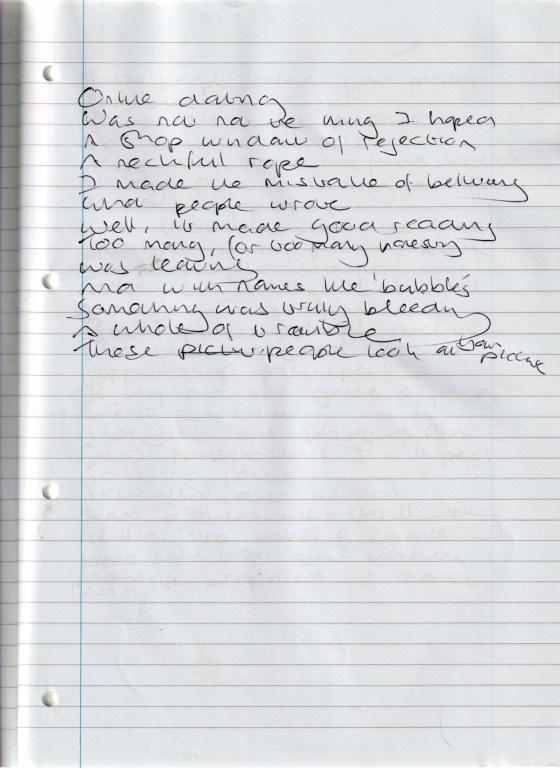 Online dating
Was not the thing I hoped
A Shop window of rejection
A neckful rope
I made the mistake of believing
what people wrote
Well, it made good reading
Too many, for too many honesty
was leaving
And with names like 'bubbles'
Something was truly bleeding
A whole of trouble
These picture people look at your picture